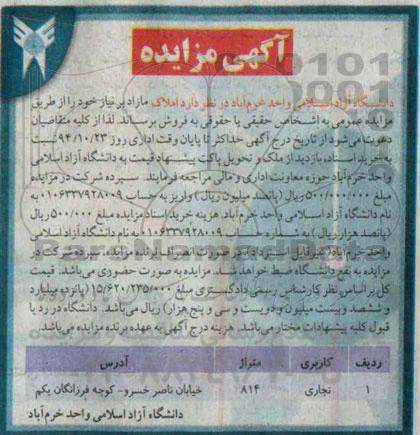 آگهی مزایده
دانشگاه آزاد اسلامی واحد خرم‌آباد در نظر دارد املاک مازاد بر نیاز خود را از طریق
مزایده عمومی به اشخاص حقیقی یا حقوقی به فروش برساند. لذا از کلیه متقاضیان
دعوت می‌شود از تاریخ درج آگهی حداکثر تا پایان وقت اداری روز ۹۴/۱۰/۲۳ نسبت
به خرید اسناد، بازدید از ملک و تحویل پاکت پیشنهاد قیمت به دانشگاه آزاد اسلامی
واحد خرم‌آباد حوزه معاونت اداری و مالی مراجعه فرمایند. سپرده شرکت در مزایده
مبلغ ۵۰۰/۰۰۰/۰۰۰ ریال (پانصد میلیون ریال) واریز به حساب ۰۱۰۶۳۳۷۹۲۸۰۰۹ به
نام دانشگاه آزاد اسلامی واحد خرم‌آباد. هزینه خرید اسناد مزایده مبلغ ۵۰۰/۰۰۰ ریال
(پانصد هزار ریال) به شماره حساب ۰۱۰۶۳۳۷۹۲۸۰۰۹ به نام دانشگاه آزاد اسلامی
واحد خرم‌آباد (غیرقابل استرداد) در صورت انصراف برنده مزایده، سپرده شرکت در
مزایده به نفع دانشگاه ضبط خواهد شد. مزایده به صورت حضوری می‌باشد. قیمت
کل بر اساس نظر کارشناس رسمی دادگستری مبلغ ۱۵/۶۲۰/۲۳۵/۰۰۰ (پانزده میلیارد
و ششصد و بیست میلیون و دویست و سی و پنج هزار) ریال می‌باشد. دانشگاه در رد یا
قبول کلیه پیشنهادات مختار می‌باشد. هزینه درج آگهی به عهده برنده مزایده می‌باشد.
ردیف کاربری متراژ آدرس
۱ تجاری ۸۱۴ خیابان ناصر خسرو- کوچه فرزانگان یکم
دانشگاه آزاد اسلامی واحد خرم‌آباد